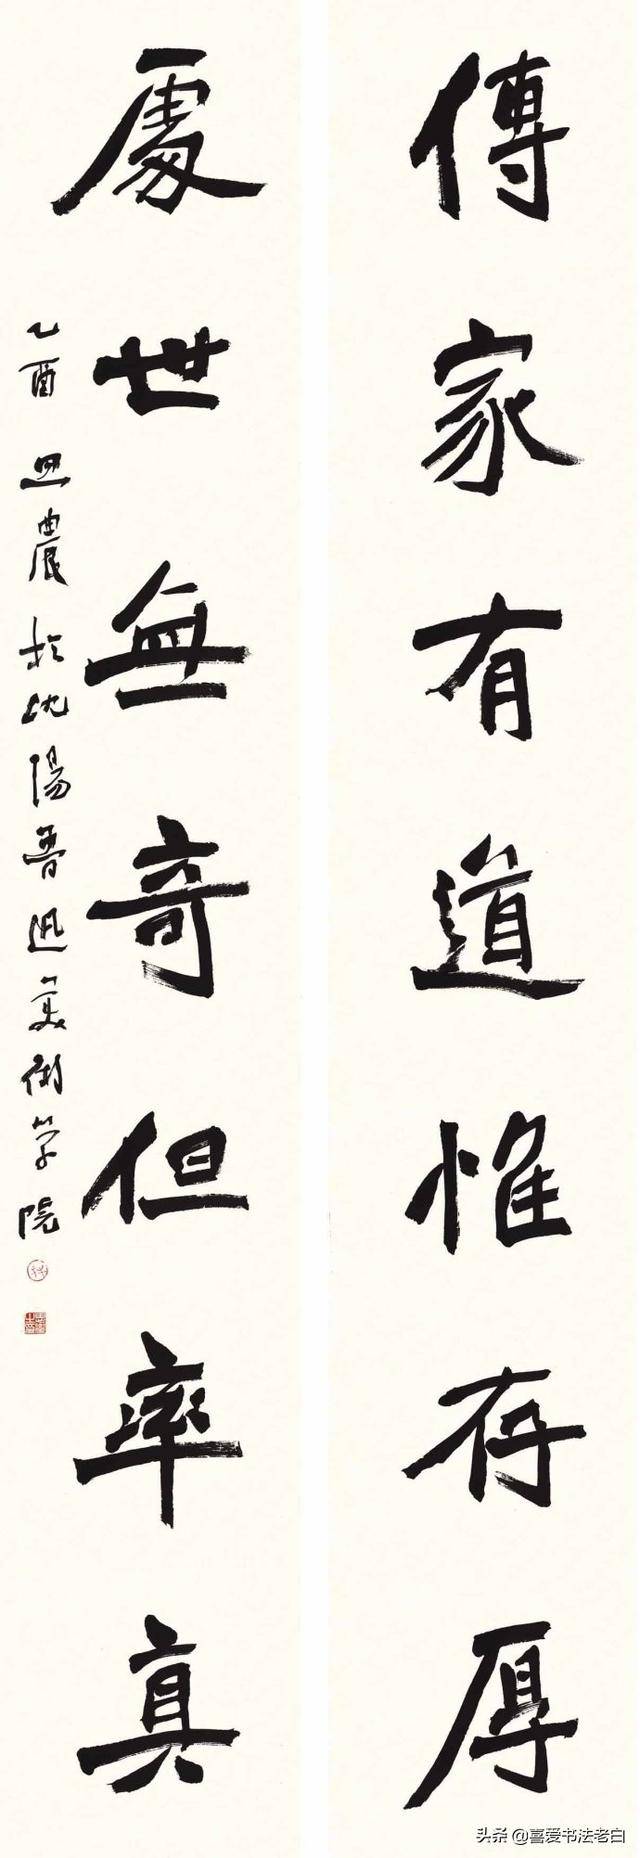 傳家有道惟存厚
處世無奇但率真
乙酉 思農於沈陽魯迅美術學院
头条 @喜爱书法老白